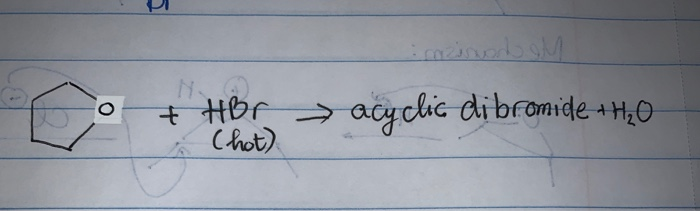 O + HBr → acyclic dibromide + H₂O
(hot)